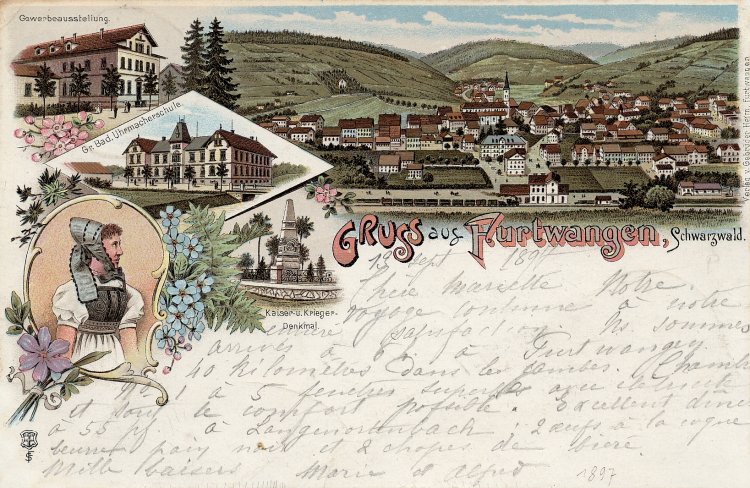 Gewerbeausstellung.
Gr. Bad. Uhrmacherschule.
Kaiser- u. Krieger-
Denkmal.
Gruss aus Furtwangen, Schwarzwald.
Verlag v. Gebrüder Ferm, Furtwangen
13 Sept 1897
Mariette Notre
voyage continue à notre
satisfaction Ns sommes
arrivés à à Furtwangen
40 kilomètres dans les jambes. Chambre
1 à 5 fenêtres superbes avec électricité
et tout le comfort possible. Excellent diner
à 55 pf. à Langenortenbach : 2 œufs à la coque
beurre pain noir et 2 chopes de bière.
Mille baisers Marie et Alfred
1897